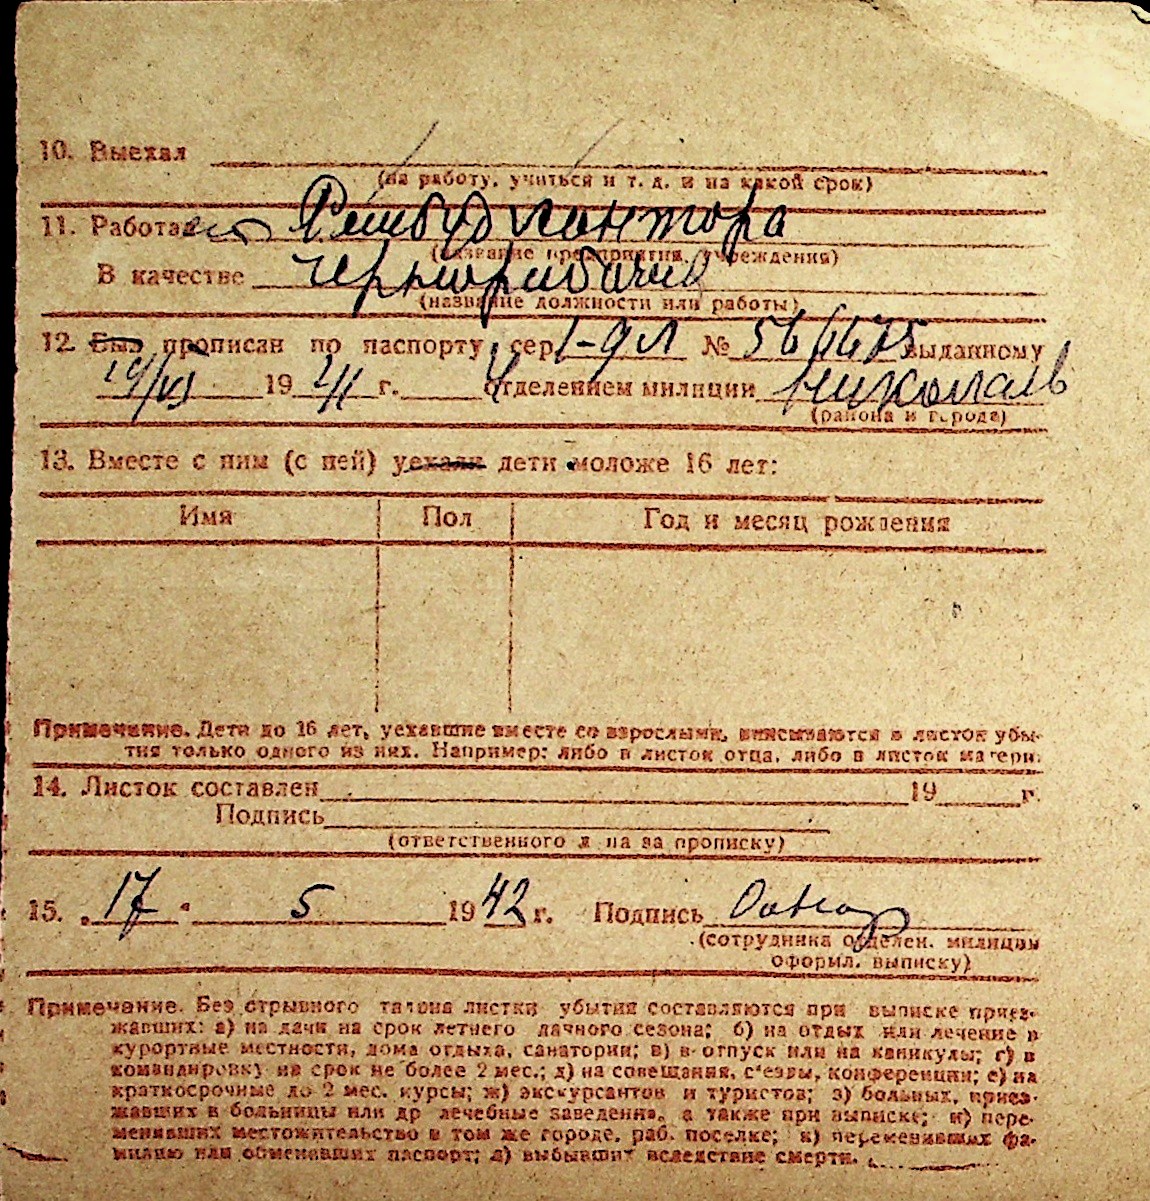 10. Выехал
(на работу, учиться и т. д. и на какой срок)
11. Работает Рембудконтора
(название предприятия, учреждения)
В качестве чернорабочий
(название должности или работы)
12. Был прописан по паспорту сер. № выданному
19 41 г. отделением милиции Николаев
(района и города)
13. Вместе с ним (с ней) уехали дети моложе 16 лет:
Имя Пол Год и месяц рождения
Примечание. Дети до 16 лет, уехавшие вместе со взрослыми, вписываются в листок убы-
тия только одного из них. Например: либо в листок отца, либо в листок матери.
14. Листок составлен 19 г.
Подпись
(ответственного л ца за прописку)
15. „17" 5 1942 г. Подпись
(сотрудника отделен. милиции
оформл. выписку)
Примечание. Без отрывного талона листки убытия составляются при выписке приез-
жавших: а) на дачи на срок летнего дачного сезона; б) на отдых или лечение в
курортные местности, дома отдыха, санатории; в) в отпуск или на каникулы; г) в
командировку на срок не более 2 мес.; д) на совещания, с'езды, конференции; е) на
краткосрочные до 2 мес. курсы; ж) экскурсантов и туристов; з) больных, приез-
жавших в больницы или др лечебные заведения, а также при выписке; и) пере-
менивших местожительство в том же городе, раб. поселке; к) переменивших фа-
милию или обменявших паспорт; л) выбывших вследствие смерти.